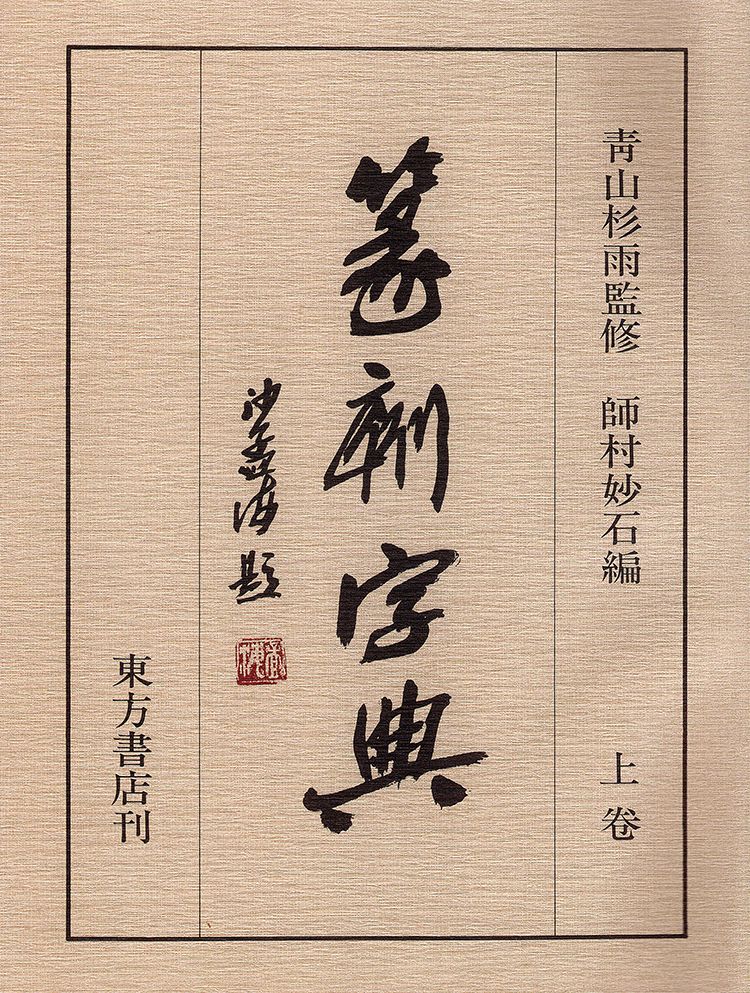 靑山杉雨監修 師村妙石編 上卷
篆刻字典
沙孟海題
東方書店刊